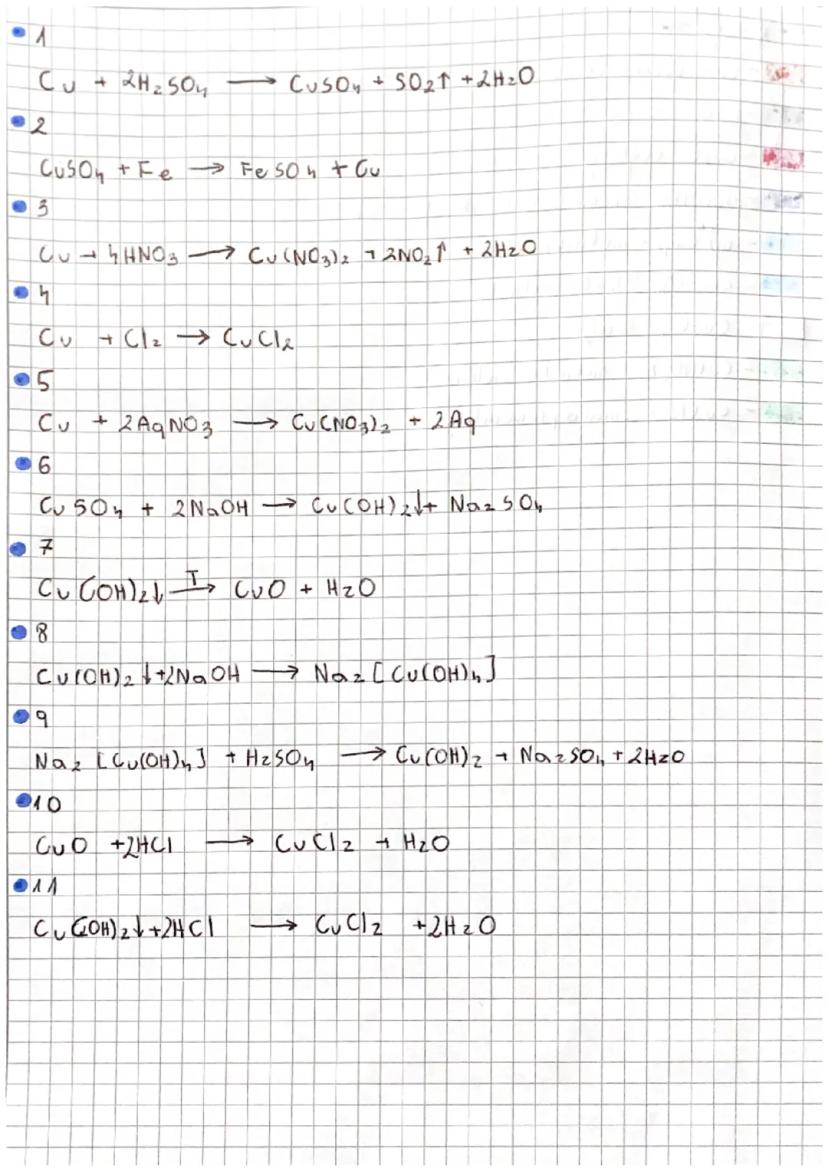 1
Cu + 2H₂SO₄ → CuSO₄ + SO₂↑ + 2H₂O
2
CuSO₄ + Fe → FeSO₄ + Cu
3
Cu + 4HNO₃ → Cu(NO₃)₂ + 2NO₂↑ + 2H₂O
4
Cu + Cl₂ → CuCl₂
5
Cu + 2AgNO₃ → Cu(NO₃)₂ + 2Ag
6
CuSO₄ + 2NaOH → Cu(OH)₂↓ + Na₂SO₄
7
Cu(OH)₂↓ —T→ CuO + H₂O
8
Cu(OH)₂↓ + 2NaOH → Na₂[Cu(OH)₄]
9
Na₂[Cu(OH)₄] + H₂SO₄ → Cu(OH)₂ + Na₂SO₄ + 2H₂O
10
CuO + 2HCl → CuCl₂ + H₂O
11
Cu(OH)₂↓ + 2HCl → CuCl₂ + 2H₂O